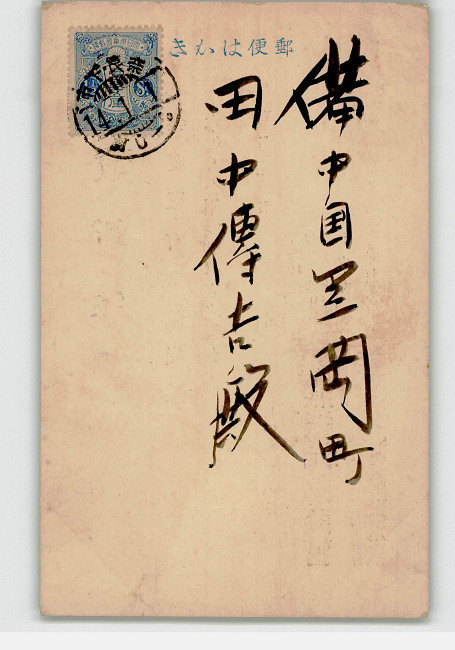 郵便はかき
備中国里岡町
田中傳吉殿
14.1.1